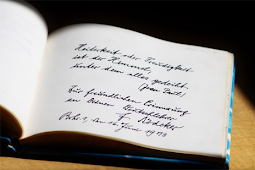 Heiterkeit oder Freudigkeit
ist der Himmel,
unter dem alles gedeiht.
(Jean Paul)
Zur freundlichen Erinnerung
an Ihren Deutschlehrer
F.
den 16. Juni 1978